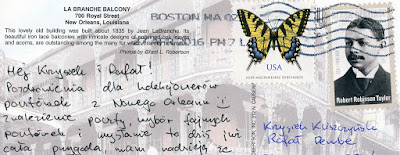 LA BRANCHE BALCONY
700 Royal Street
New Orleans, Louisiana
This lovely old building was built about 1835 by Jean LaBranche. Its
beautiful iron lace balconies with intricate designs of oak leaves
and acorns, are outstanding among the many for which
Photo by Grant L. Robertson
BOSTON MA 02
2016 PM 7 L
USA
Robert Robinson Taylor
Hej Krzysiek i Rafał!
Pozdrowienia dla kolekcjonerów
pocztówek z Nowego Orleanu :)
Znalezienie poczty, wybór fajnych
pocztówek i wysłanie to dziś już
cała przygoda mam nadzieję że
Krzysiek Kuszczyński
Rafał